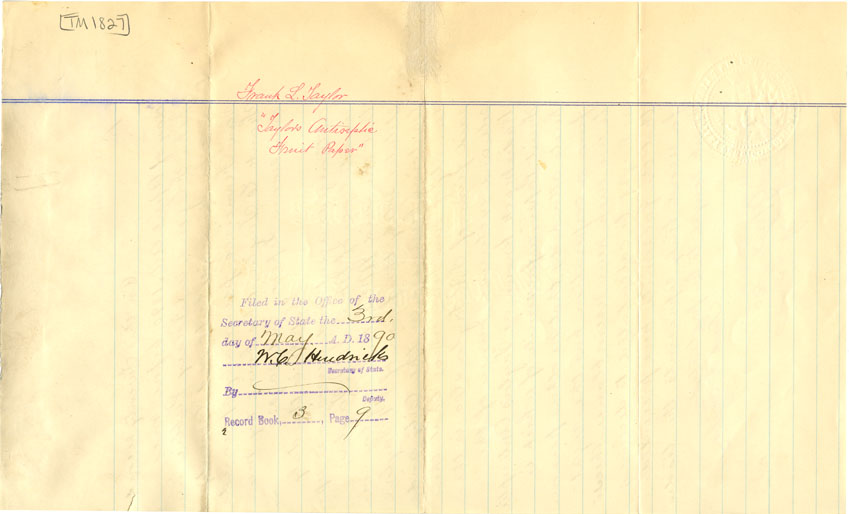 [TM1827]
Frank L. Taylor
"Taylors Antiseptic
Fruit Paper"
Filed in the Office of the
Secretary of State the 3rd.
day of May A. D. 1890
W. C. Hendricks
Secretary of State.
By
Deputy.
Record Book, 3, Page 9